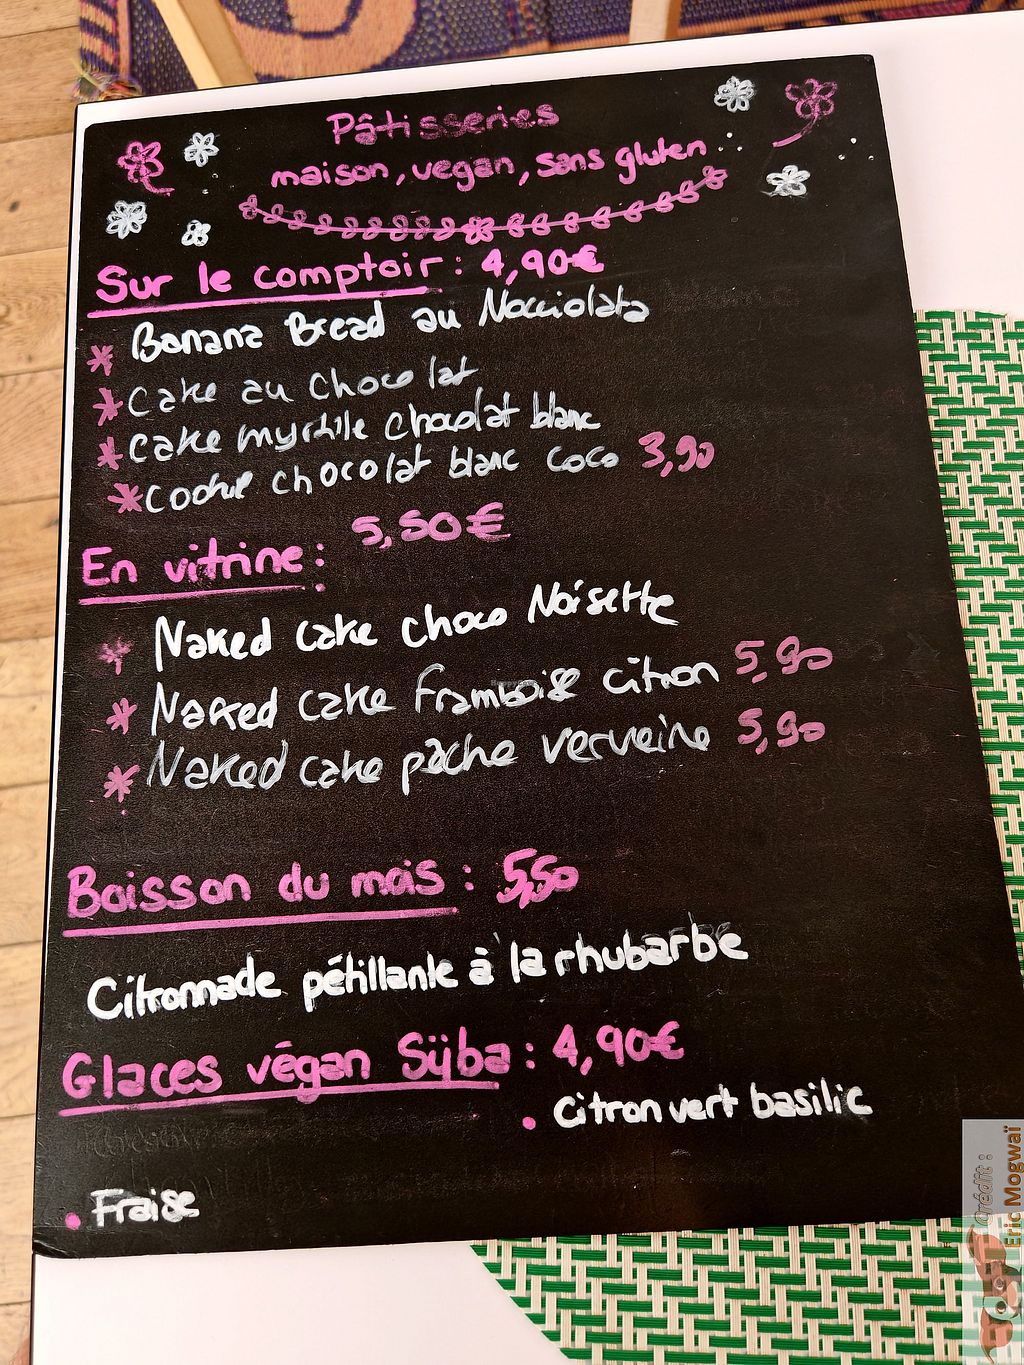 Pâtisseries
maison, vegan, sans gluten
Sur le comptoir : 4,90€
* Banana Bread au Nocciolata
* Cake au chocolat
* Cake myrtille chocolat blanc
* Cookie chocolat blanc coco 3,90
En vitrine : 5,50€
* Naked cake choco Noisette
* Naked cake framboise citron 5,90
* Naked cake pêche verveine 5,90
Boisson du mois : 5,50
Citronnade pétillante à la rhubarbe
Glaces végan Sÿba : 4,90€
• citron vert basilic
• Fraise
Crédit :
Eric Mogwaï